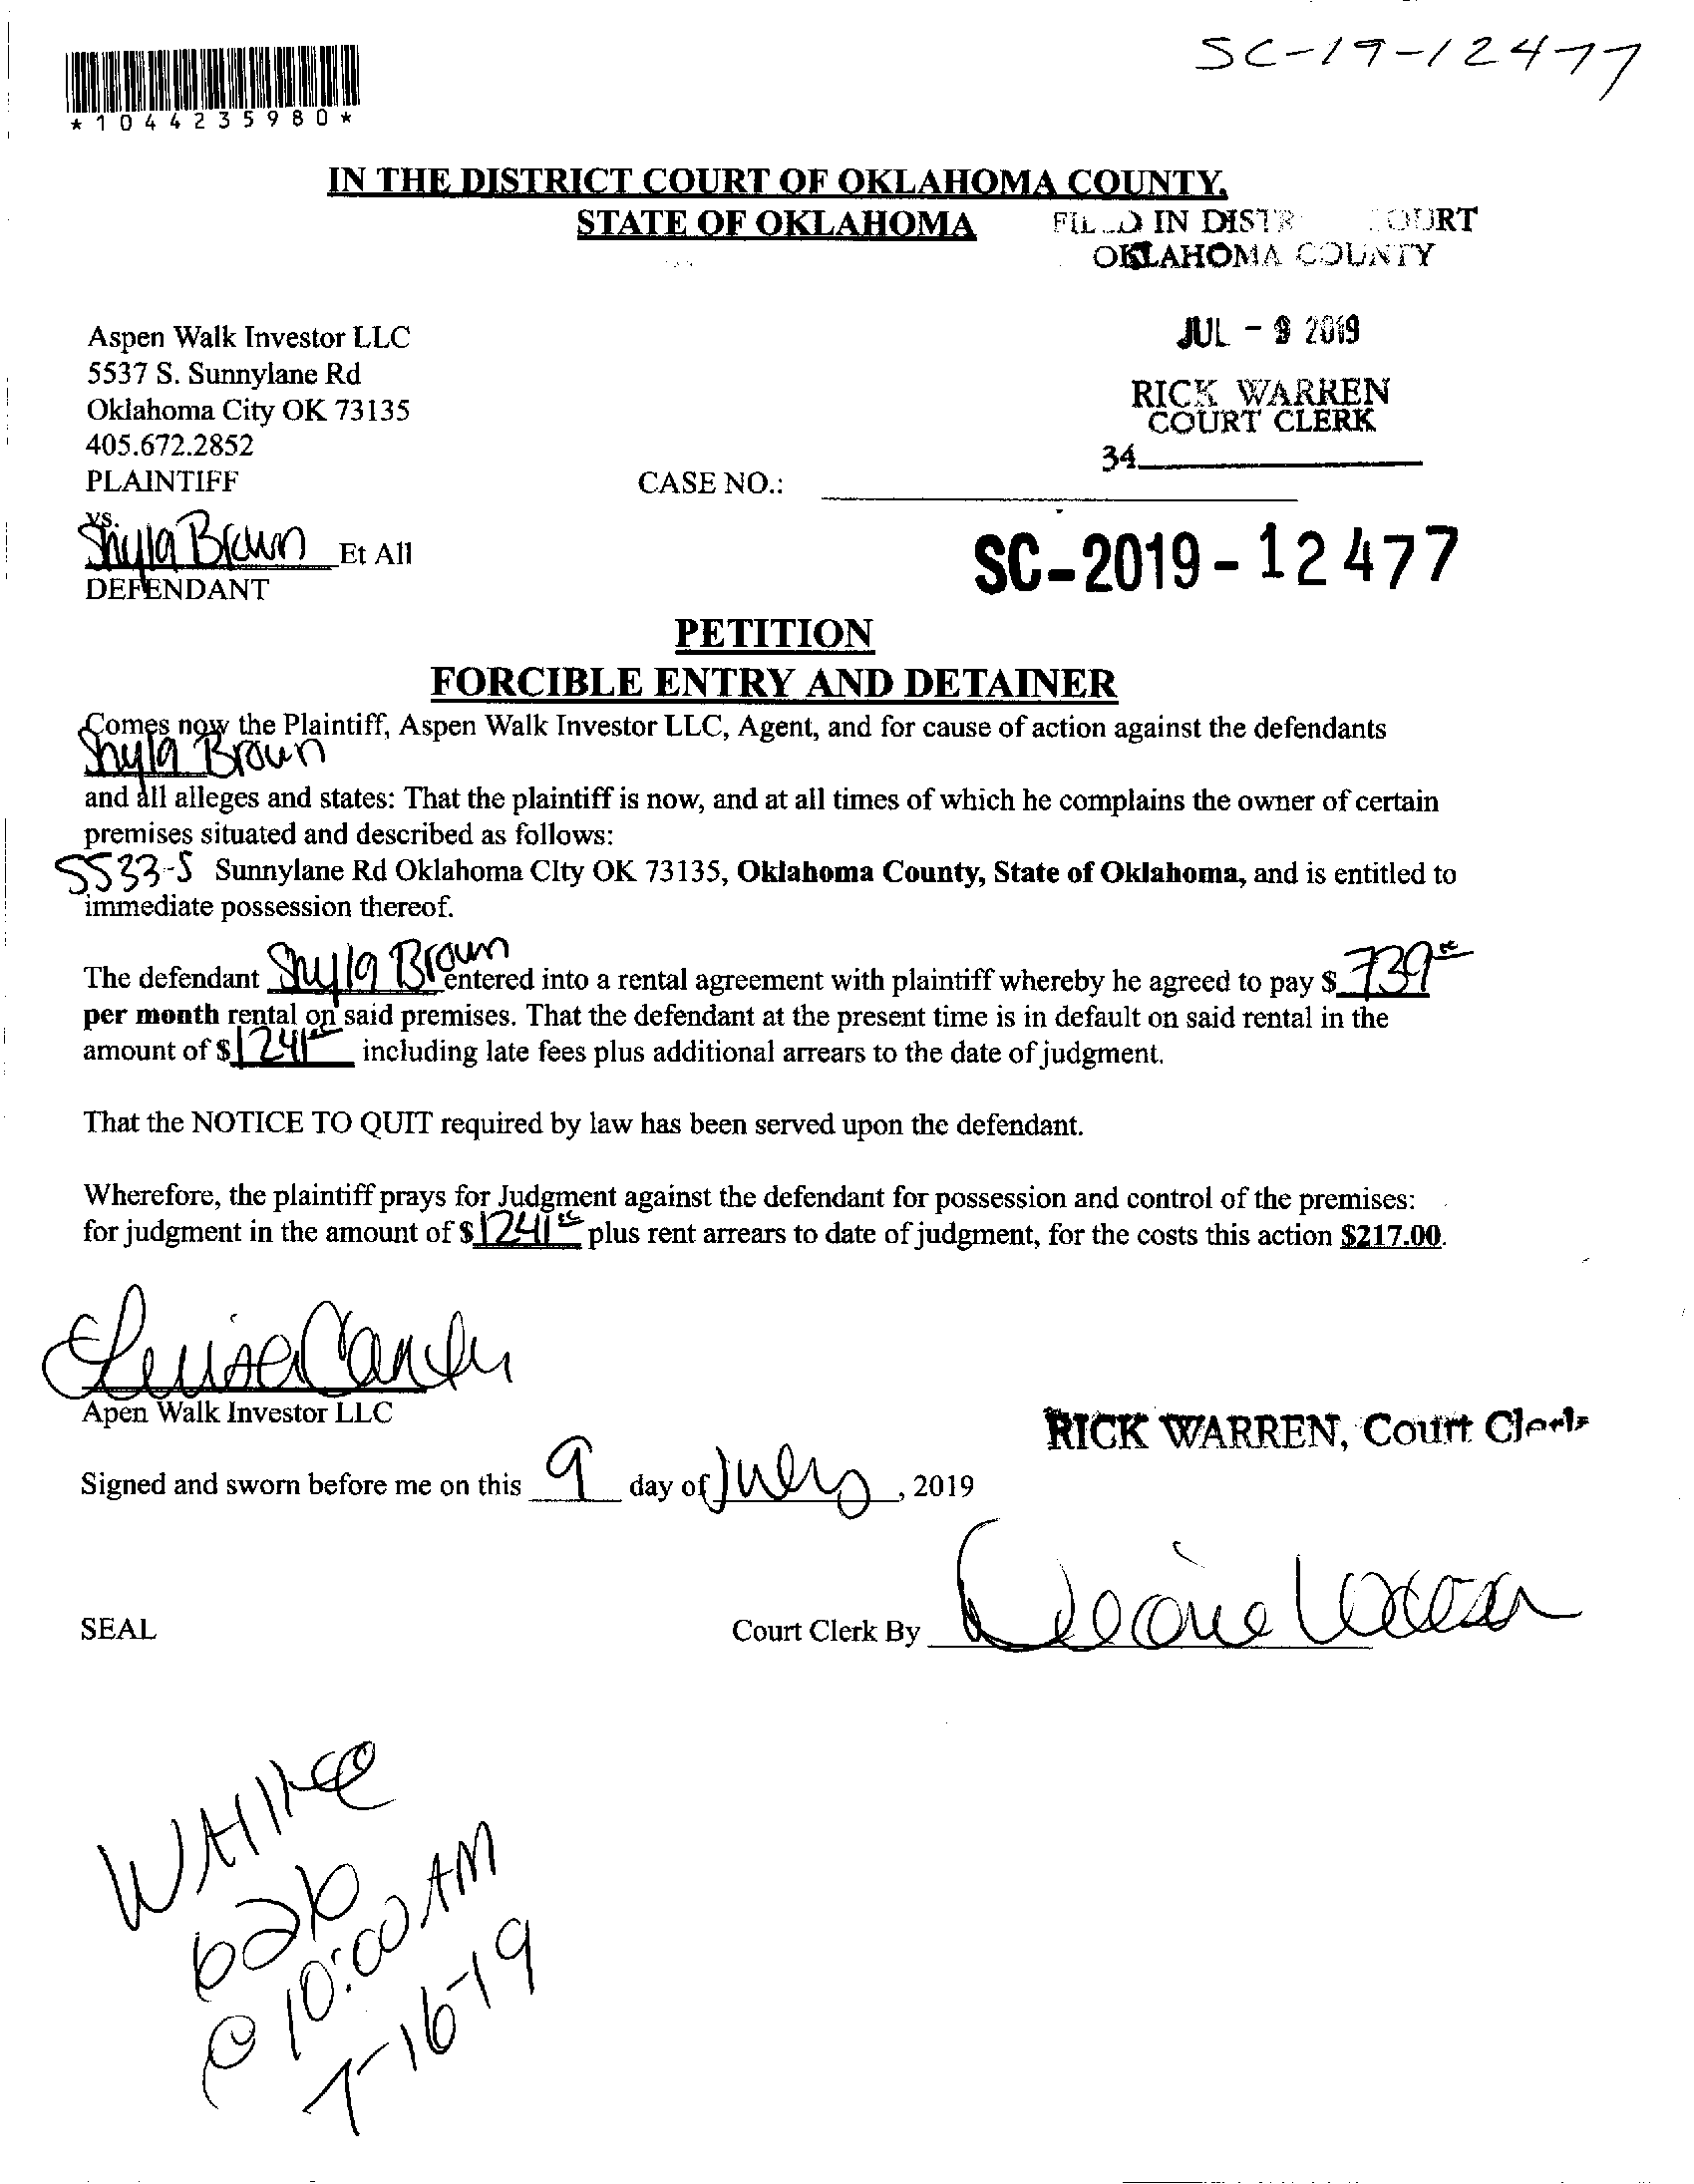 SC-19-12477
*1044235980*
IN THE DISTRICT COURT OF OKLAHOMA COUNTY,
STATE OF OKLAHOMA
IN
OKLAHOMA COUNTY
JUL - 9 2019
RICK WARREN
COURT CLERK
34
Aspen Walk Investor LLC
5537 S. Sunnylane Rd
Oklahoma City OK 73135
405.672.2852
PLAINTIFF
CASE NO.:
vs.
Shyla Brown Et All
DEFENDANT
SC-2019-12477
PETITION
FORCIBLE ENTRY AND DETAINER
Comes now the Plaintiff, Aspen Walk Investor LLC, Agent, and for cause of action against the defendants
Shyla Brown
and all alleges and states: That the plaintiff is now, and at all times of which he complains the owner of certain
premises situated and described as follows:
5533-S Sunnylane Rd Oklahoma CIty OK 73135, Oklahoma County, State of Oklahoma, and is entitled to
immediate possession thereof.
The defendant Shyla Brown entered into a rental agreement with plaintiff whereby he agreed to pay $ 739
per month rental on said premises. That the defendant at the present time is in default on said rental in the
amount of $ 1241 including late fees plus additional arrears to the date of judgment.
That the NOTICE TO QUIT required by law has been served upon the defendant.
Wherefore, the plaintiff prays for Judgment against the defendant for possession and control of the premises:
for judgment in the amount of $ 1241 plus rent arrears to date of judgment, for the costs this action $217.00.
Apen Walk Investor LLC
RICK WARREN, Court Clerk
Signed and sworn before me on this 9 day of July, 2019
SEAL
Court Clerk By
@ 10:00 AM
7-16-19